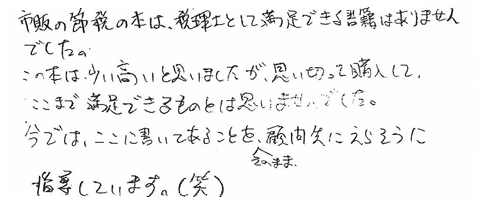 市販の節税の本は、税理士として満足できる書籍はありません
でした。
この本は少い高いと思いましたが、思い切って購入して、
ここまで満足できるものとは思いませんでした。
今では、ここに書いてあることを、顧問先にえらそうに
そのまま
指導しています。(笑)